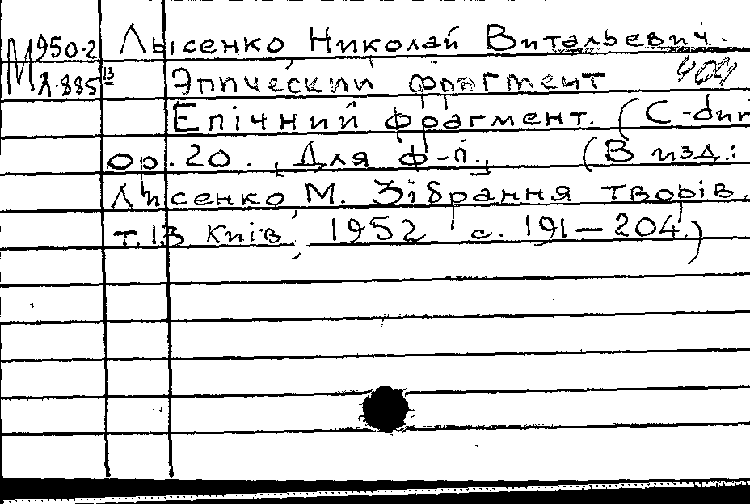 М 950-2 Лысенко, Николай Витальевич.
Л.885 13 Эпический фрагмент
Епічний фрагмент. (C-dur
op. 20. [Для ф-п.] (В изд.:
Лисенко, М. Зібрання творів.
т. 13 Київ, 1952 с. 191-204.)